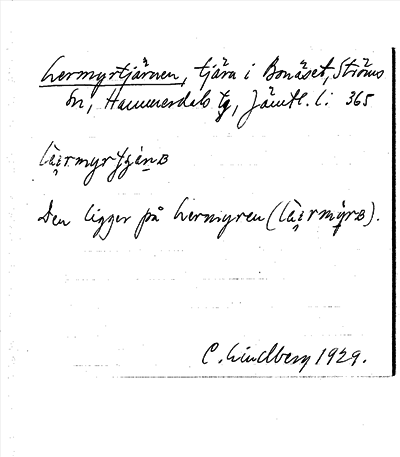 Lermyrtjärnen, tjärn i Bonäset, Ströms
sn, Hammerdals tg, Jämtl. l. 365
Den ligger på Lermyren
C. Lindberg 1929.